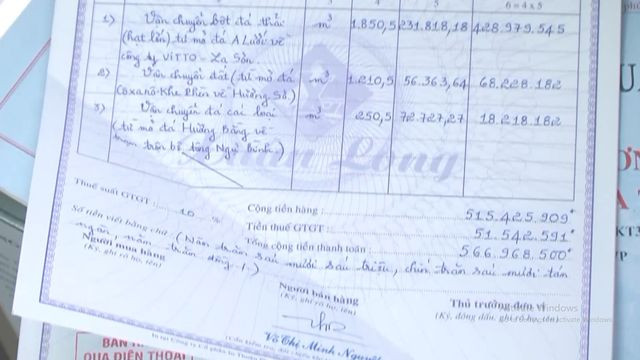 3 4 5 6 = 4 x 5
1) Vận chuyển bột đá thác m³ 1.850,5 231.818,18 428.979.545
(hạt lớn) từ mỏ đá A Lưới về
công ty VITTO - La Sơn.
2) Vận chuyển đất (từ mỏ đá m³ 1.210,5 56.363,64 68.228.182
Coxano-Khe Phèn về Hương Sơ.)
3) Vận chuyển đá các loại m³ 250,5 72.727,27 18.218.182
(từ mỏ đá Hương Bằng về
trạm trộn bê tông Ngự Bình.)
Long
Cộng tiền hàng : 515.425.909
Thuế suất GTGT : 10 % Tiền thuế GTGT : 51.542.591
Tổng cộng tiền thanh toán : 566.968.500
Số tiền viết bằng chữ : (Năm trăm sáu mươi sáu triệu, chín trăm sáu mươi tám
ngàn, năm trăm đồng ./.)
Người mua hàng Người bán hàng Thủ trưởng đơn vị
(Ký, ghi rõ họ, tên) (Ký, ghi rõ họ, tên) (Ký, đóng dấu, ghi rõ họ, tên)
Võ Thị Minh Nguyệt
Windows
Activate Windows
BÁN
QUA ĐIỆN THOẠI